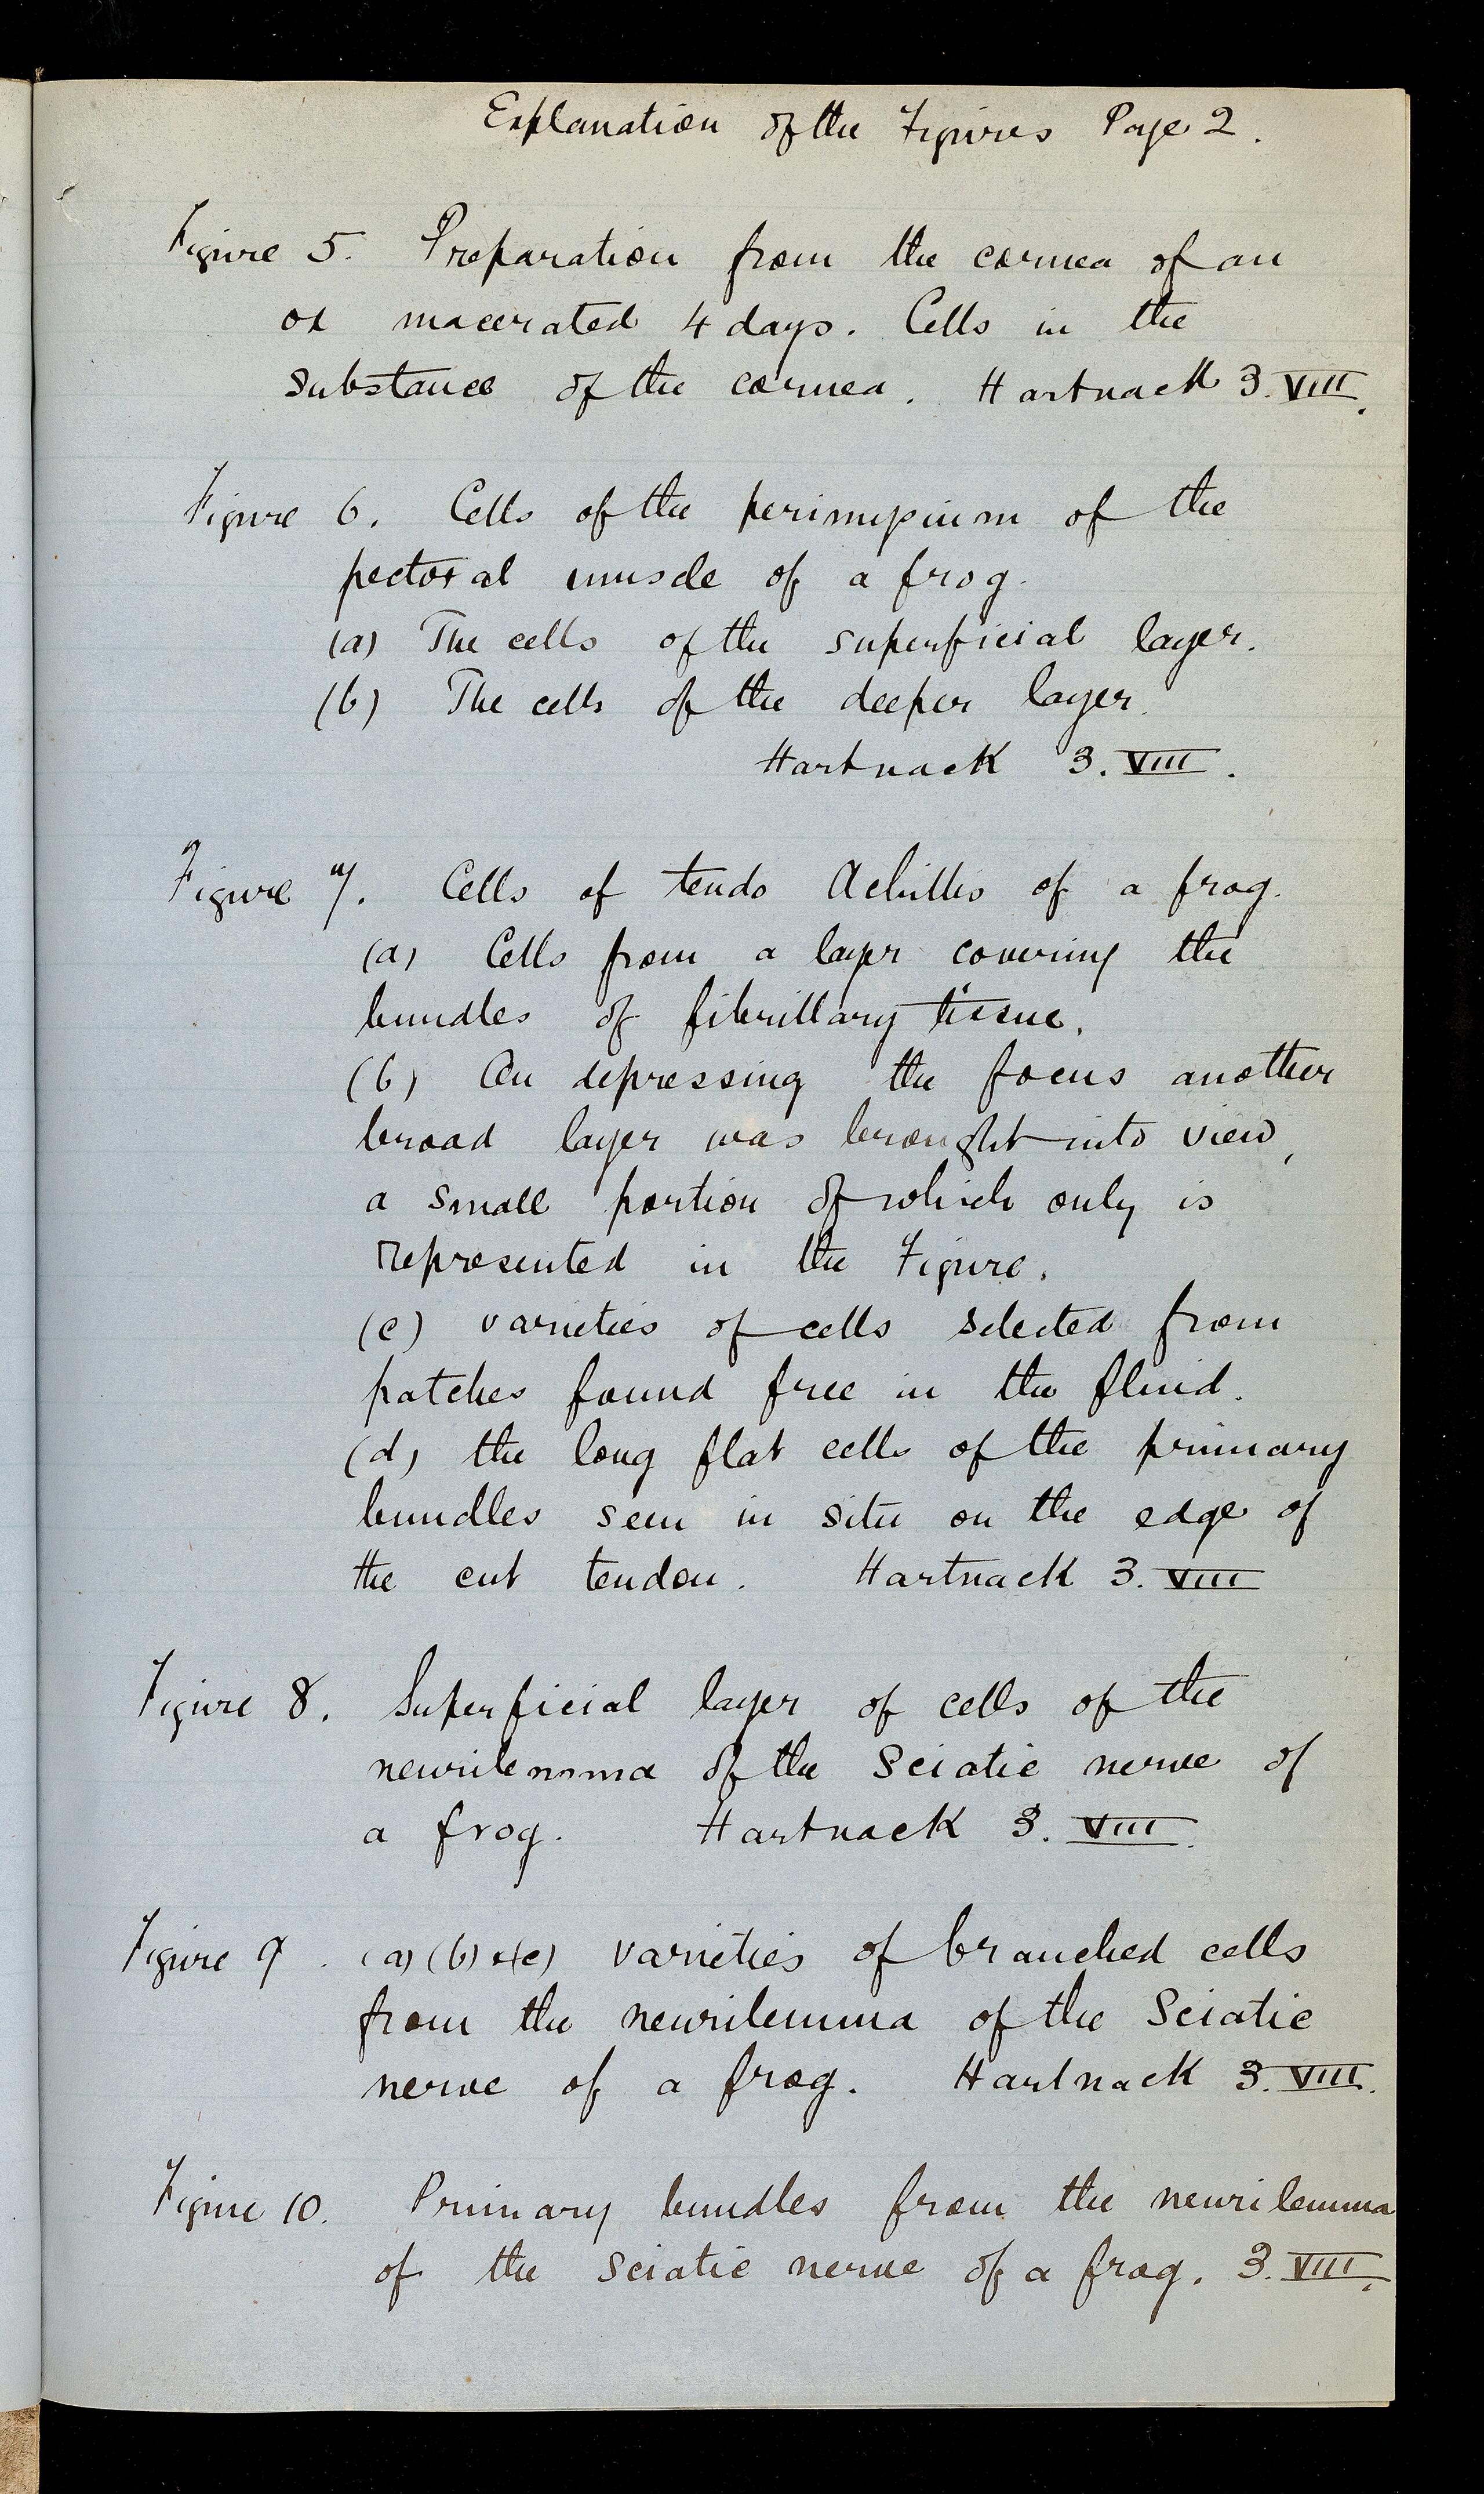 Explanation of the Figures Page 2.
Figure 5. Preparation from the cornea of an
ox macerated 4 days. Cells in the
substance of the cornea. Hartnack 3. VIII.
Figure 6. Cells of the perimysium of the
pectoral muscle of a frog.
(a) The cells of the superficial layer.
(b) The cells of the deeper layer.
Hartnack 3. VIII.
Figure 7. Cells of tendo Achilles of a frog.
(a) Cells from a layer covering the
bundles of fibrillary tissue.
(b) On depressing the focus another
broad layer was brought into view,
a small portion of which only is
represented in the Figure.
(c) varieties of cells selected from
patches found free in the fluid.
(d) the long flat cells of the primary
bundles seen in situ on the edge of
the cut tendon. Hartnack 3. VIII
Figure 8. Superficial layer of cells of the
neurilemma of the Sciatic nerve of
a frog. Hartnack 3. VIII.
Figure 9. (a) (b) & (c) varieties of branched cells
from the neurilemma of the Sciatic
nerve of a frog. Hartnack 3. VIII.
Figure 10. Primary bundles from the neurilemma
of the Sciatic nerve of a frog. 3. VIII.